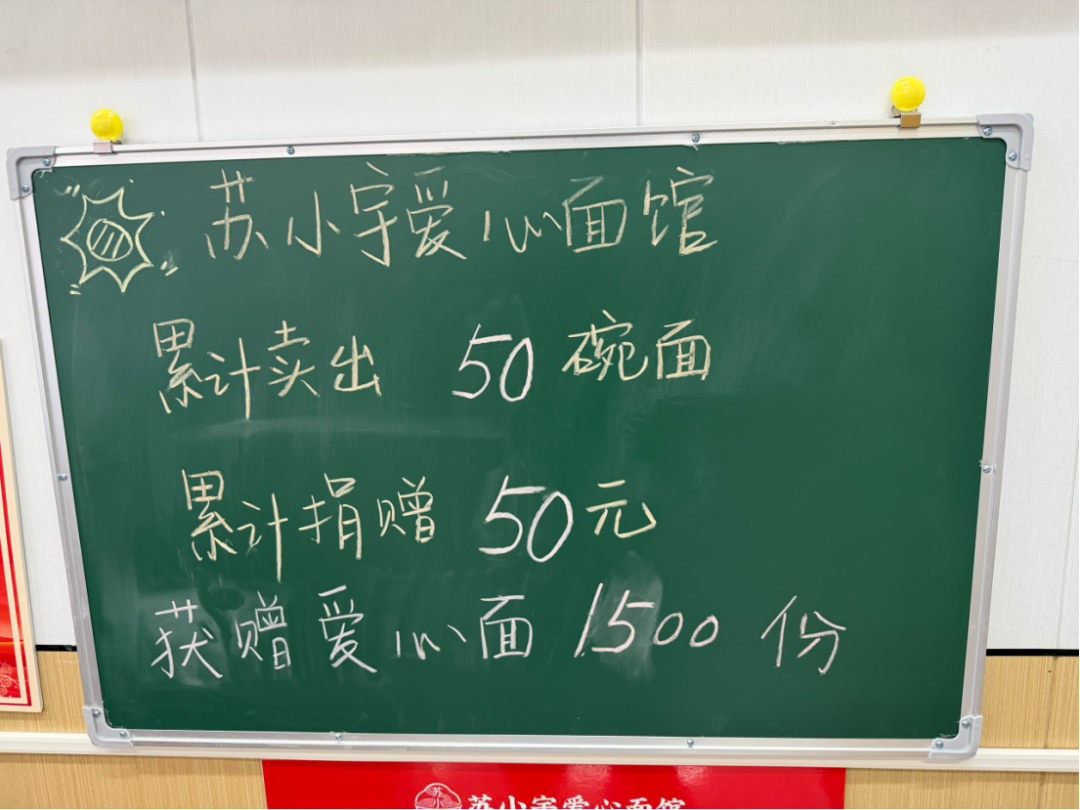 苏小宇爱心面馆
累计卖出 50 碗面
累计捐赠 50 元
获赠爱心面 1500 份
苏小
苏小宇爱心面馆